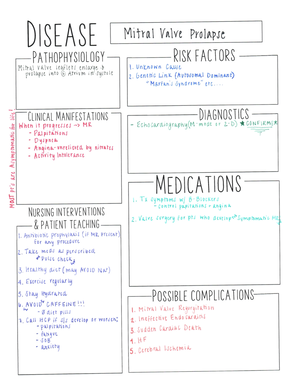 DISEASE
Mitral Valve Prolapse
PATHOPHYSIOLOGY
Mitral valve leaflets enlarge &
prolapse into Ⓛ Atrium in systole
RISK FACTORS
1. Unknown Cause
2. Genetic Link (Autosomal Dominant)
- "Marfan's Syndrome" etc....
MOST Pt's are Asymptomatic for life!
CLINICAL MANIFESTATIONS
When it progresses → MR
- Palpitations
- Dyspnea
- Angina-unrelieved by nitrates
- Activity Intolerance
DIAGNOSTICS
- Echocardiography (M-mode or 2-D) ★CONFIRMS
MEDICATIONS
1. Tx symptoms w/ B-Blockers
- control palpitations + angina
2. Valve surgery for pts who develop Symptomatic MR
NURSING INTERVENTIONS
& PATIENT TEACHING
1. Antibiotic prophylaxis (if MR Present)
for any procedure
2. Take meds as perscribed
Pulse check
3. Healthy diet (may AVOID Na+)
4. Exercise regularly
5. Stay Hydrated
6. AVOID CAFFEINE!!!
- & diet pills
7. Call HCP if s/s develop or worsen:
- palpitations
- fatigue
- SOB
- anxiety
POSSIBLE COMPLICATIONS
1. Mitral Valve Regurgitation
2. Infective Endocarditis
3. Sudden Cardiac Death
4. HF
5. Cerebral Ischemia